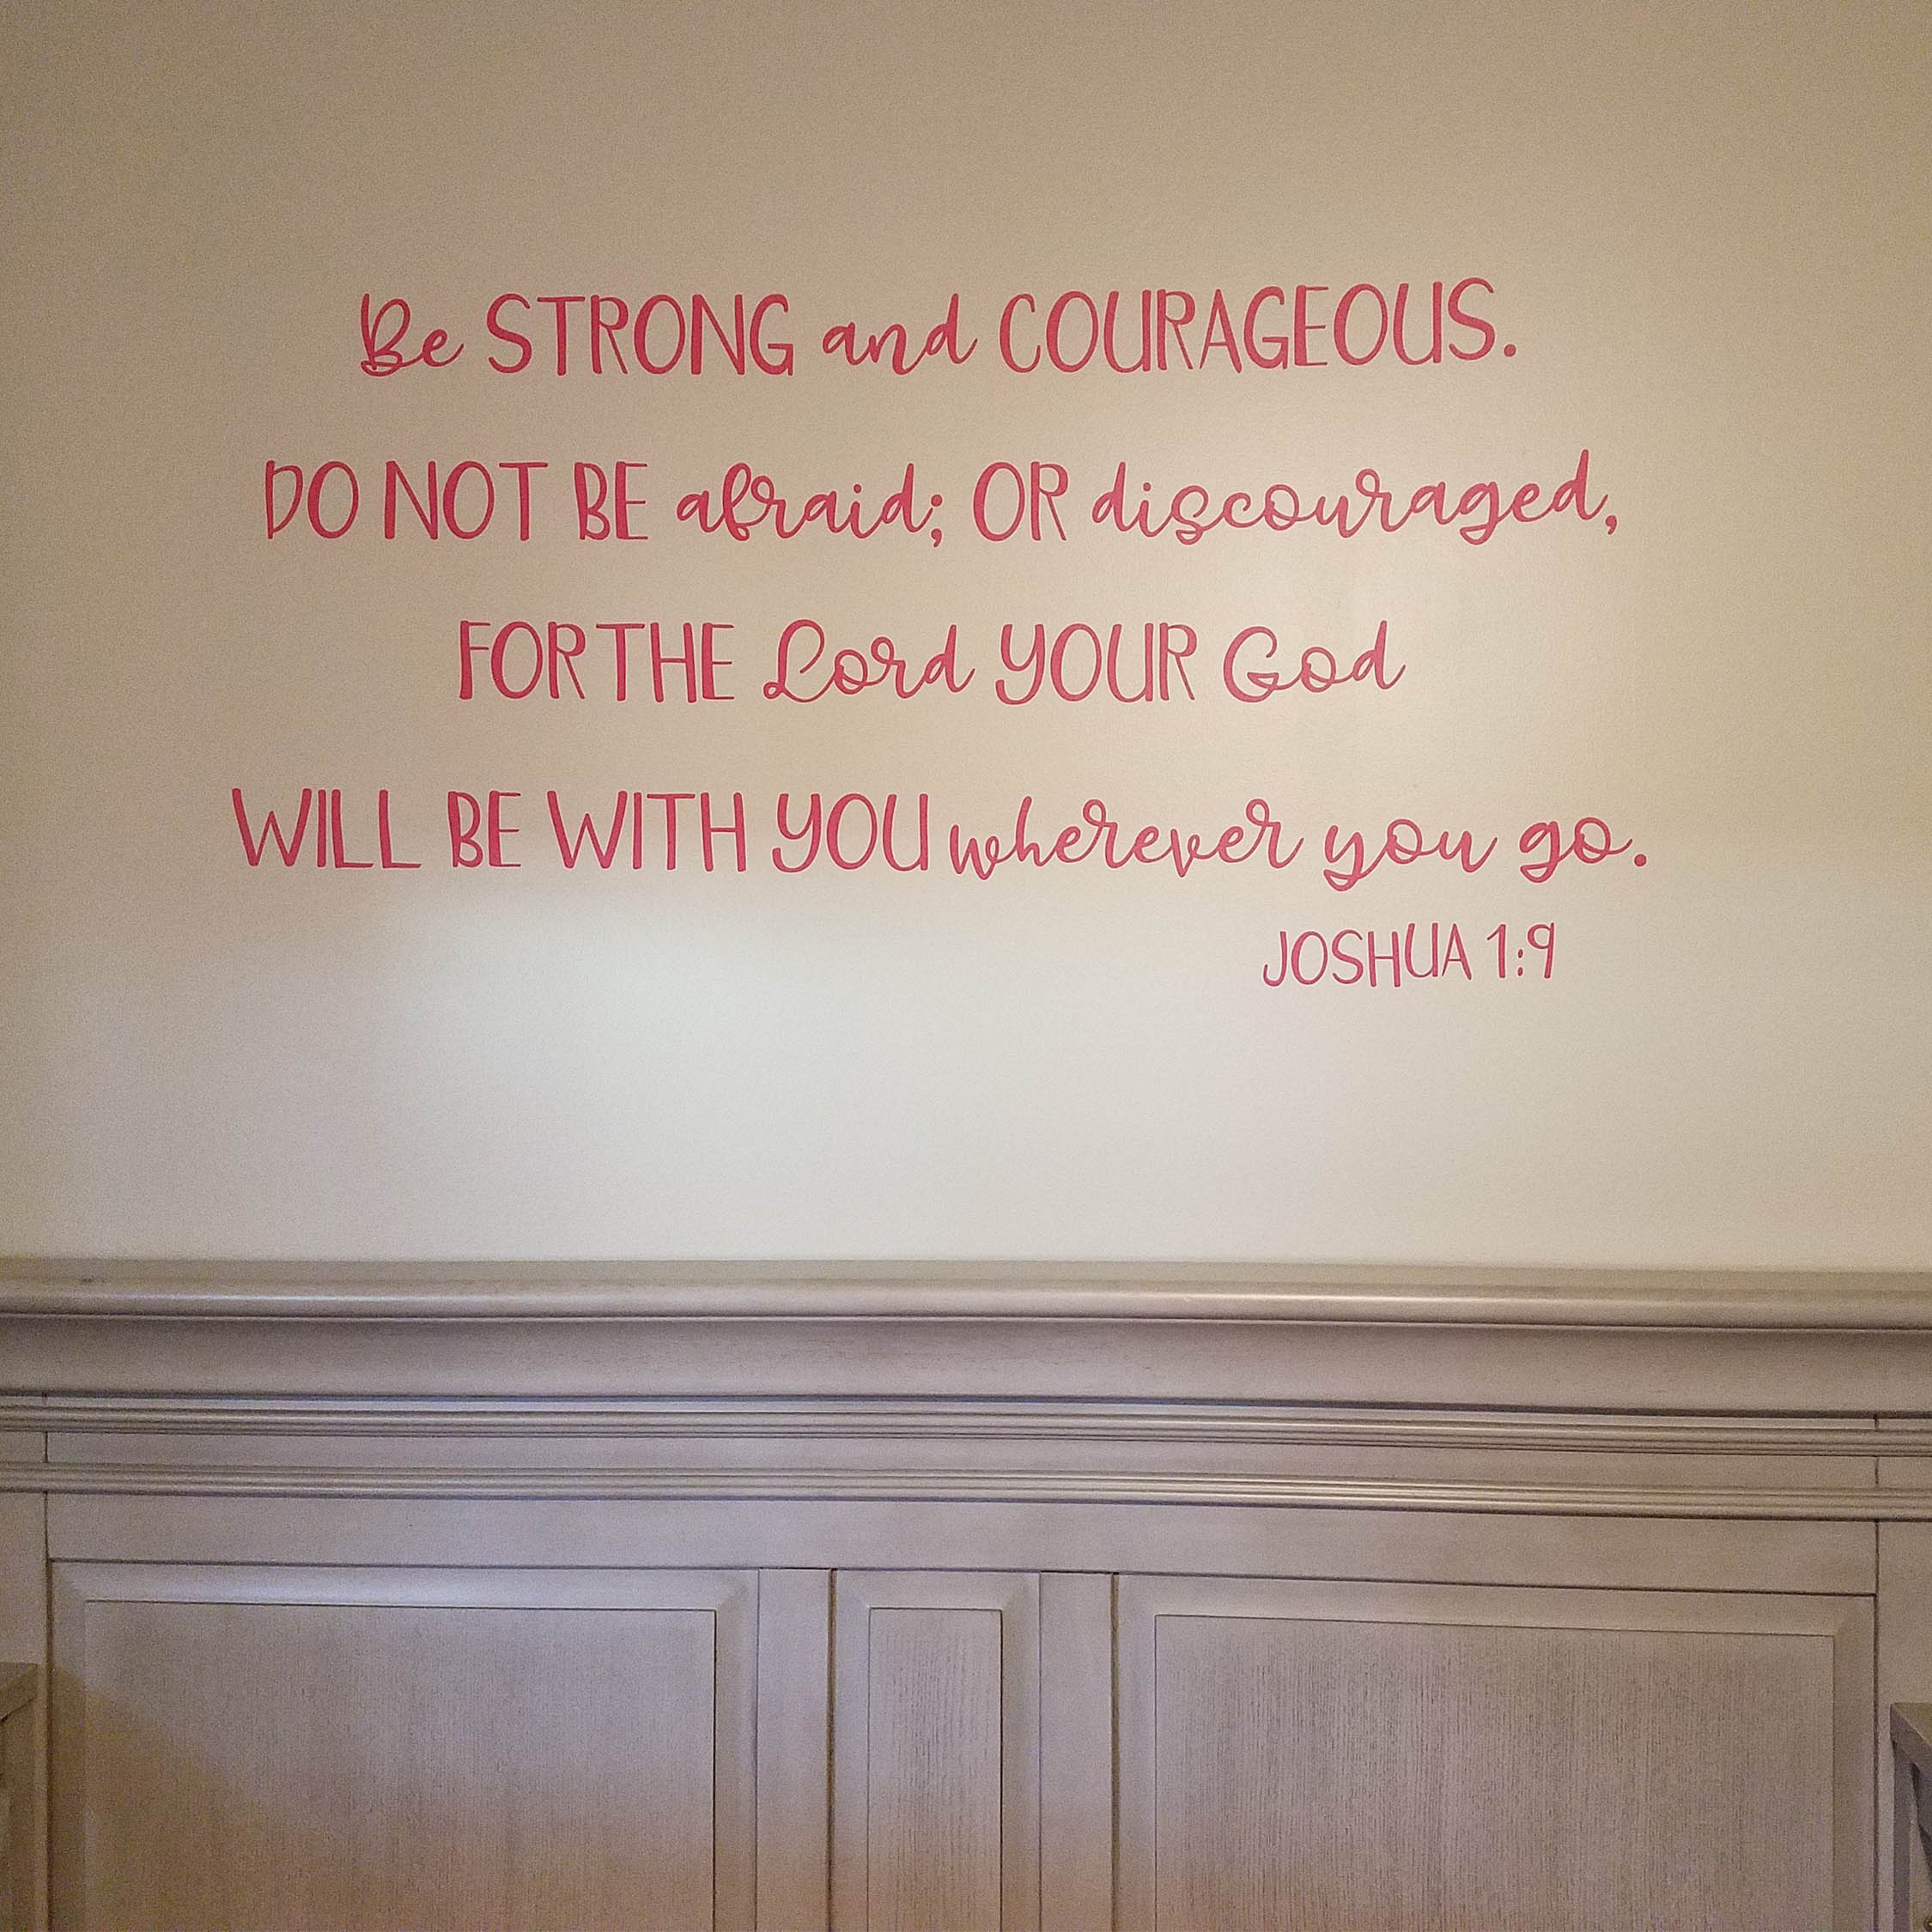 Be STRONG and COURAGEOUS.
DO NOT BE afraid; OR discouraged,
FOR THE Lord YOUR God
WILL BE WITH YOU wherever you go.
JOSHUA 1:9